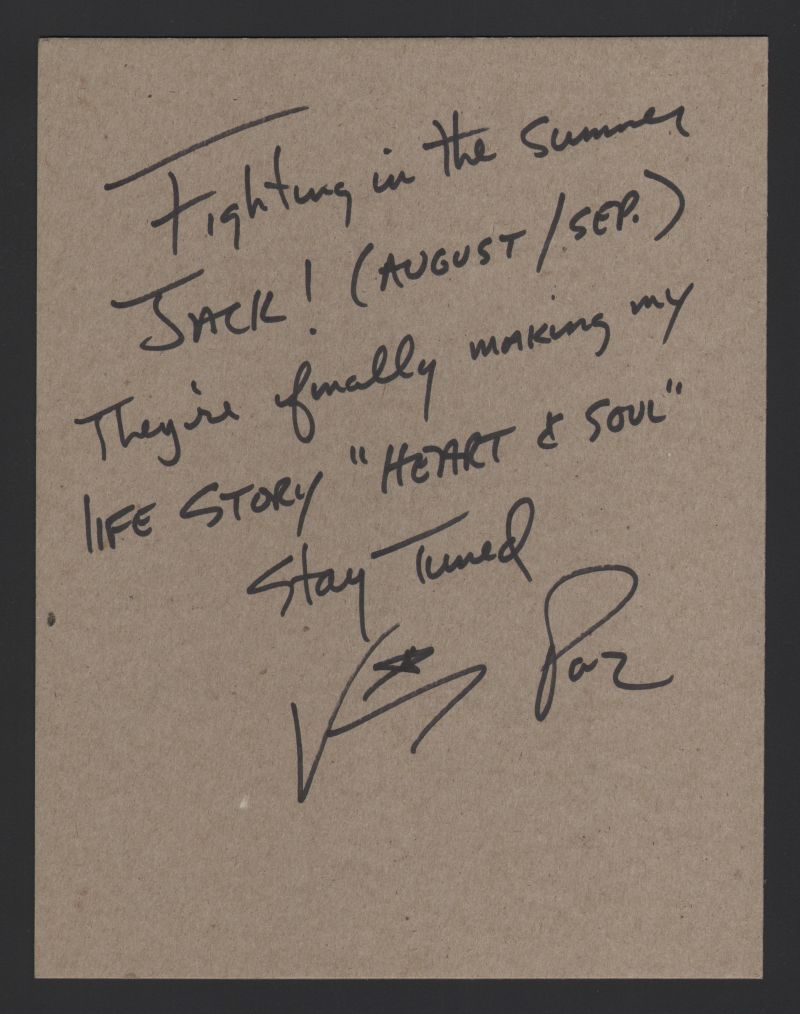 Fighting in the summer
JACK! (AUGUST/SEP.)
They're finally making my
LIFE STORY "HEART & SOUL"
Stay Tuned
Vinny Paz